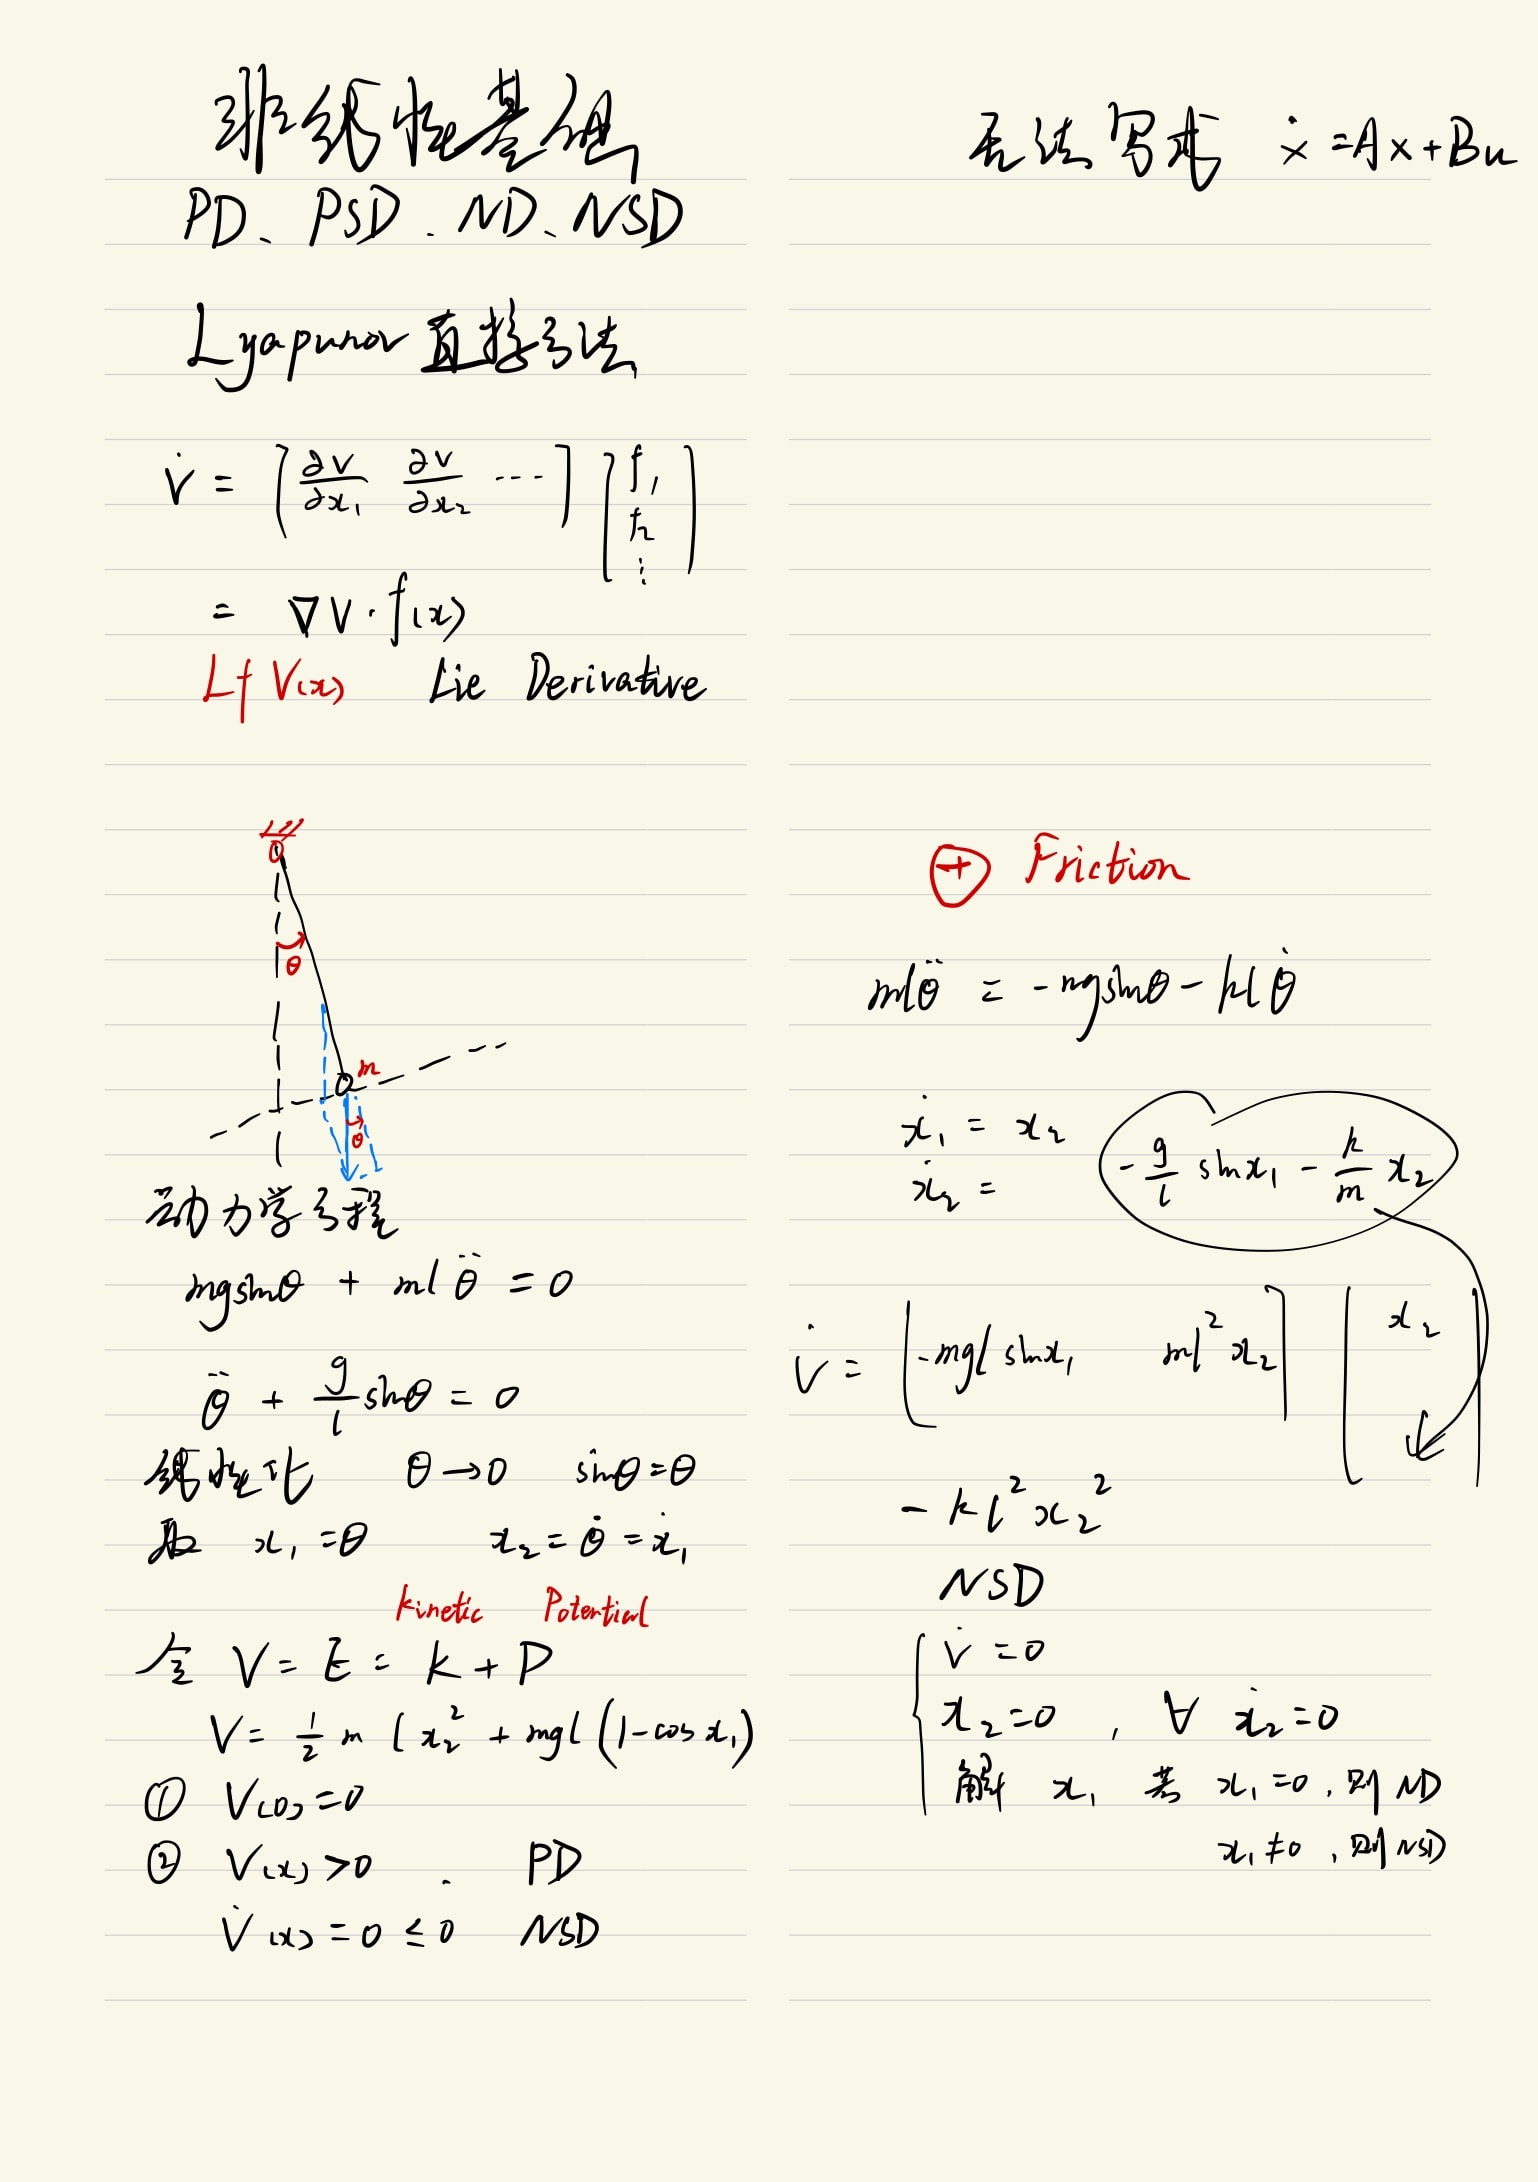 非线性基础
PD、PSD、ND、NSD
无法写成 ẋ=Ax+Bu
Lyapunov 直接方法
V̇ = [∂V/∂x₁ ∂V/∂x₂ ···] [f₁ f₂ ⋮]
= ∇V·f(x)
Lf V(x) Lie Derivative
θ
m
θ
动力学方程
mgsinθ + mlθ̈ = 0
θ̈ + g/l sinθ = 0
线性化 θ→0 sinθ=θ
取 x₁=θ x₂=θ̇=ẋ₁
Kinetic Potential
令 V = E = K + P
V = 1/2 m l x₂² + mgl(1-cos x₁)
① V(0)=0
② V(x)>0 . PD
V̇(x)=0≤0 NSD
⊕ Friction
mlθ̈ = -mgsinθ - klθ̇
ẋ₁ = x₂
ẋ₂ = -g/l sinx₁ - k/m x₂
V̇ = [-mgl sinx₁ ml²x₂] [x₂ ]
-kl²x₂²
NSD
V̇=0
x₂=0 , ∀ ẋ₂=0
解 x₁ 若 x₁=0,则 ND
x₁≠0,则 NSD